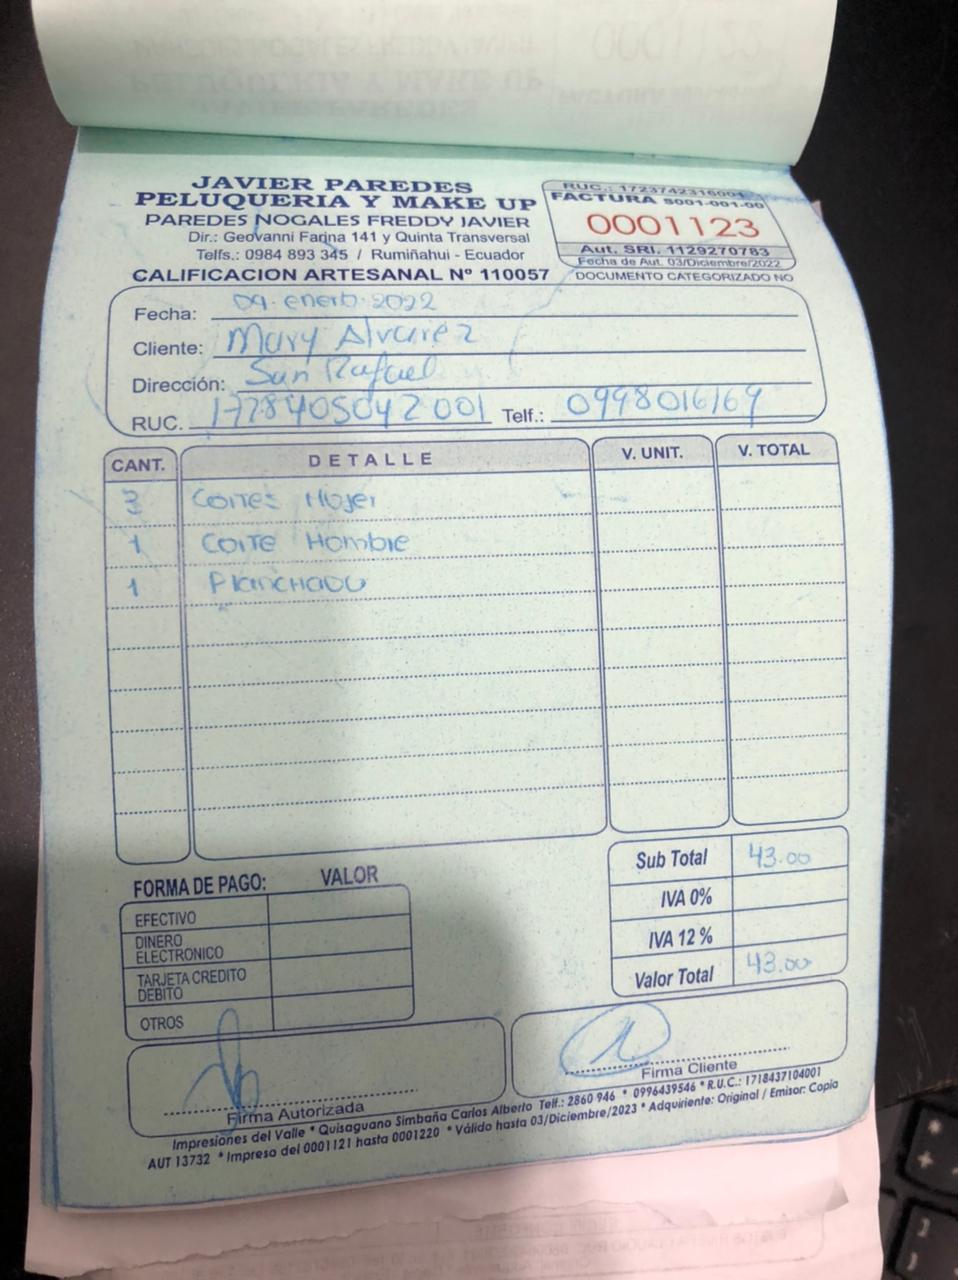 JAVIER PAREDES
PELUQUERIA Y MAKE UP
PAREDES NOGALES FREDDY JAVIER
Dir.: Geovanni Farina 141 y Quinta Transversal
Telfs.: 0984 893 345 / Rumiñahui - Ecuador
CALIFICACION ARTESANAL Nº 110057
RUC.: 1723742316001
FACTURA S001-001-00
0001123
Aut. SRI. 1129270783
Fecha de Aut. 03/Diciembre/2022
DOCUMENTO CATEGORIZADO NO
Fecha: 09. enero. 2022
Cliente: Mary Alvarez
Dirección: San Rafael
RUC. 1728405042001 Telf.: 0998016169
CANT. DETALLE V. UNIT. V. TOTAL
3 Cortes Mujer
1 Corte Hombre
1 Planchado
FORMA DE PAGO: VALOR
EFECTIVO
DINERO ELECTRONICO
TARJETA CREDITO DEBITO
OTROS
Sub Total 43.00
IVA 0%
IVA 12 %
Valor Total 43.00
Firma Autorizada
Firma Cliente
Impresiones del Valle * Quisaguano Simbaña Carlos Alberto Telf.: 2860 946 * 0996439546 * R.U.C.: 1718437104001
AUT 13732 * Impreso del 0001121 hasta 0001220 * Válido hasta 03/Diciembre/2023 * Adquiriente: Original / Emisor: Copia